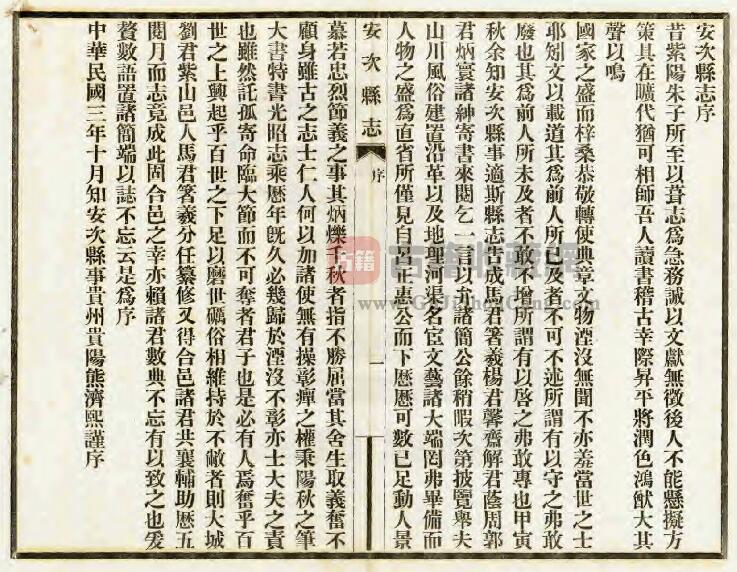 安次縣志序
昔紫陽朱子所至以葺志為急務誠以文獻無徵後人不能懸擬方
策具在曠代猶可相師吾人讀書稽古幸際昇平將潤色鴻猷大其
聲以鳴
國家之盛而梓桑恭敬轉使典章文物湮沒無聞不亦羞當世之士
耶矧文以載道其為前人所已及者不可不述所謂有以守之弗敢
廢也其為前人所未及者不敢不增所謂有以啓之弗敢專也甲寅
秋余知安次縣事適斯縣志告成馬君箸羲楊君馨齋解君蔭周郭
君炳寰諸紳寄書來閱乞一言以弁諸簡公餘稍暇次第披覽舉夫
山川風俗建置沿革以及地理河渠名宦文藝諸大端罔弗畢備而
人物之盛為直省所僅見自呂
惠公而下歷歷可數已足動人景
安次縣志
序
一
慕若忠烈節義之事其炳爍千秋者指不勝屈當其舍生取義奮不
顧身雖古之志士仁人何以加諸使無有操彰癉之權秉陽秋之筆
大書特書光照志乘歷年旣久必幾歸於湮沒不彰亦士大夫之責
也雖然託孤寄命臨大節而不可奪者君子也是必有人焉奮乎百
世之上興起乎百世之下足以磨世礪俗相維持於不敝者則大城
劉君紫山邑人馬君箸羲分任纂修又得合邑諸君共襄輔助歷五
閱月而志竟成此固合邑之幸亦賴諸君數典不忘有以致之也爰
贅數語置諸簡端以誌不忘云是為序
中華民國三年十月知安次縣事貴州貴陽熊濟熙謹序
古籍
古籍收藏